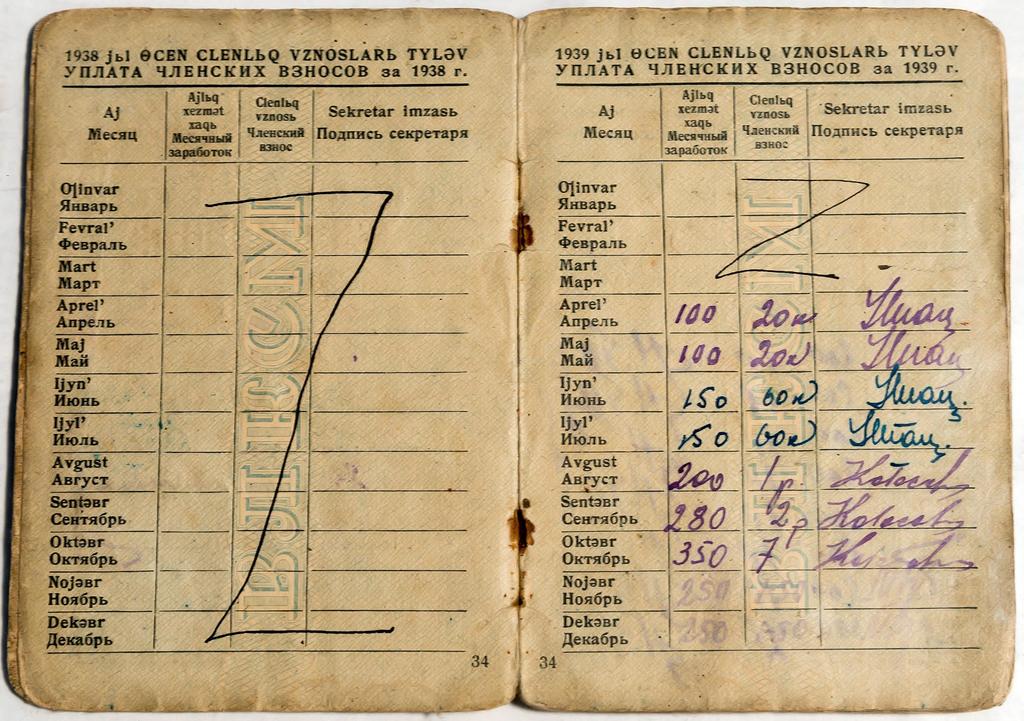 1938 jьl ɵCEN CLENLЬQ VZNOSLARЬ TYLƏV
УПЛАТА ЧЛЕНСКИХ ВЗНОСОВ за 1938 г.
Aj
Месяц
Ajlьq
xezmət
xaqь
Месячный
заработок
Clenlьq
vznosь
Членский
взнос
Sekretar imzasь
Подпись секретаря
Oƣinvar
Январь
Fevral'
Февраль
Mart
Март
Aprel'
Апрель
Maj
Май
Ijyn'
Июнь
Ijyl'
Июль
Avgust
Август
Sentəbr
Сентябрь
Oktəbr
Октябрь
Nojəbr
Ноябрь
Dekəbr
Декабрь
34
1939 jьl ɵCEN CLENLЬQ VZNOSLARЬ TYLƏV
УПЛАТА ЧЛЕНСКИХ ВЗНОСОВ за 1939 г.
Aj
Месяц
Ajlьq
xezmət
xaqь
Месячный
заработок
Clenlьq
vznosь
Членский
взнос
Sekretar imzasь
Подпись секретаря
Oƣinvar
Январь
Fevral'
Февраль
Mart
Март
Aprel'
Апрель 100 20к
Maj
Май 100 20к
Ijyn'
Июнь 150 60к
Ijyl'
Июль 150 60к
Avgust
Август 200 1р.
Sentəbr
Сентябрь 280 2р
Oktəbr
Октябрь 350 7
Nojəbr
Ноябрь 250
Dekəbr
Декабрь 250
34